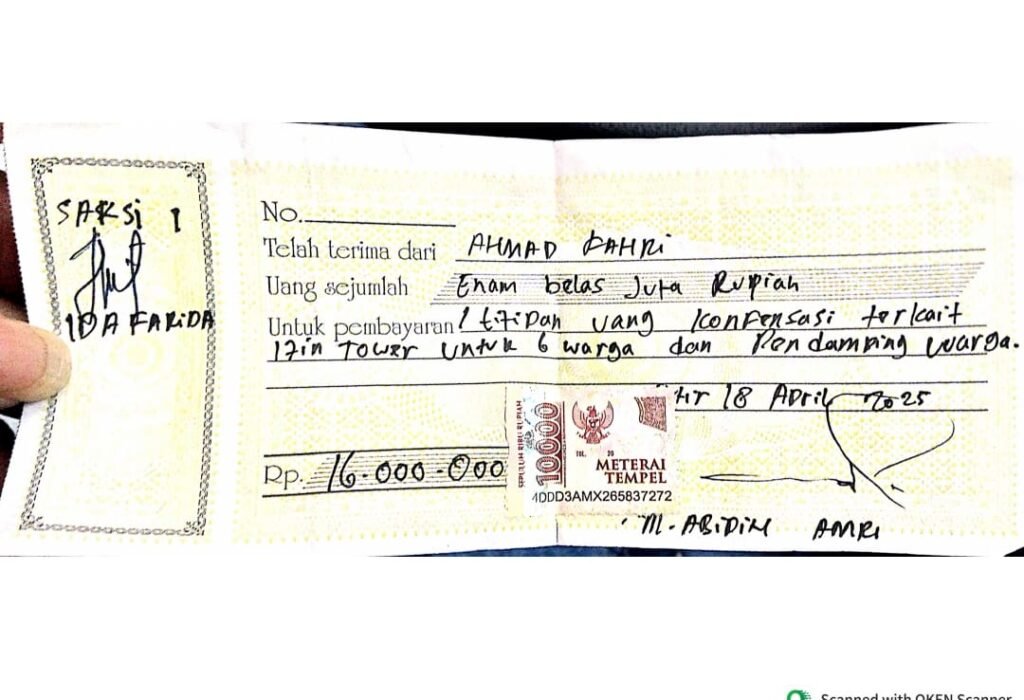 SAKSI 1
IDA FARIDA
No.
Telah terima dari AHMAD FAHRI
Uang sejumlah Enam belas Juta Rupiah
Untuk pembayaran titipan uang Konfensasi terkait
Izin Tower untuk 6 warga dan Pendamping warga.
18 April 2025
Rp. 16.000.000
SEPULUH RIBU RUPIAH
10000
TGL. 20
METERAI
TEMPEL
4DDD3AMX265837272
M. ABIDIN AMRI
Scanned with OKEN Scanner